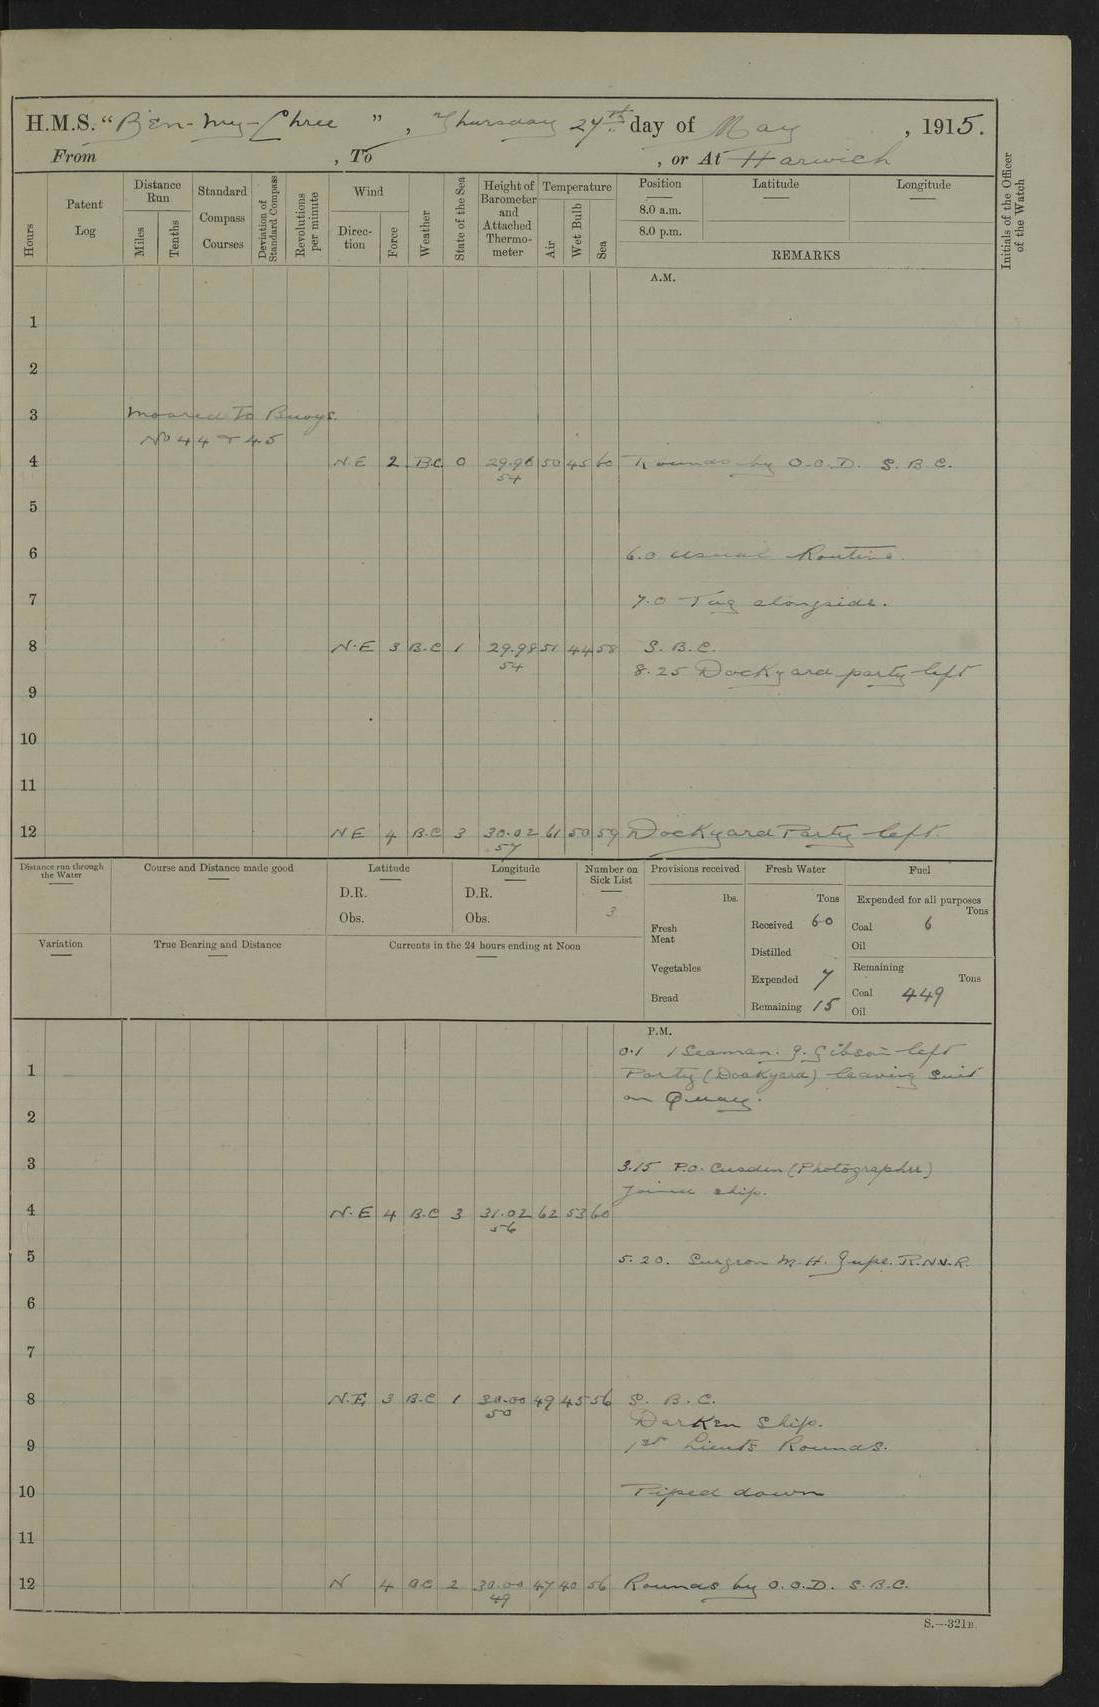 H.M.S. "Ben-my-Chree", Thursday 27th day of May, 1915.
From , To , or At Harwich
Hours
Patent Log
Distance Run
Miles
Tenths
Standard Compass Courses
Deviation of Standard Compass
Revolutions per minute
Wind
Direction
Force
Weather
State of the Sea
Height of Barometer and Attached Thermometer
Temperature
Air
Wet Bulb
Sea
Position
8.0 a.m.
8.0 p.m.
Latitude
Longitude
REMARKS
Initials of the Officer of the Watch
A.M.
1
2
3 Moored to Buoys.
No 44 & 45
4 N.E 2 B.C. 0 29.96 50 45 60 Rounds by O.O.D. S.B.C.
54
5
6 6.0 Usual Routine.
7 7.0 Tug alongside.
8 N.E 3 B.C 1 29.98 51 44 58 S.B.C.
54
8.25 Dockyard party left
9
10
11
12 NE 4 B.C 3 30.02 61 50 59 Dockyard Party left.
57
Distance run through the Water
Course and Distance made good
Latitude
D.R.
Obs.
Longitude
D.R.
Obs.
Number on Sick List
3
Provisions received
lbs.
Fresh Meat
Vegetables
Bread
Fresh Water
Tons
Received 60
Distilled
Expended 7
Remaining 15
Fuel
Expended for all purposes
Tons
Coal 6
Oil
Remaining
Tons
Coal 449
Oil
Variation
True Bearing and Distance
Currents in the 24 hours ending at Noon
P.M.
0.1 1 Seaman. J. Gibson left
1 Party (Dockyard) leaving suit
on Quay.
2
3 3.15 P.O. Cusden (Photographer)
joined ship.
4 N.E 4 B.C 3 31.02 62 53 60
56
5 5.20. Surgeon M.H. R.N.V.R.
6
7
8 N.E, 3 B.C 1 30.00 49 45 56 S.B.C.
50
Darken Ship.
9 1st Lieuts Rounds.
10 Piped down
11
12 N 4 BC 2 30.00 47 40 56 Rounds by O.O.D. S.B.C.
49
S.—321B.